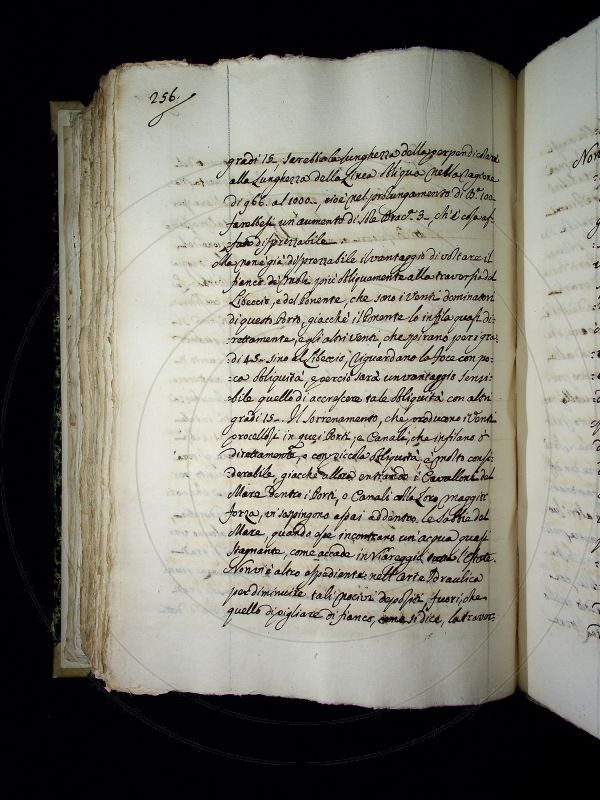 256.
gradi 15, sarebbe la lunghezza della perpendicolare
alla Lunghezza della Linea obliqua nella ragione
di 966. al 1000., cioè nel prolungamento di B.a 100
farebbesi un'aumento di sole Brac.a 3., ch'è cosa af-
fatto disprezzabile.
Ma non è già disprezzabile il vantaggio di voltare il
fianco de' moli più obliquamente alla traversia del
Libeccio, e del Ponente, che sono i Venti dominatori
di questo Porto, giacchè il Ponente lo infila quasi di-
rettamente, e gli altri venti, che spirano per i gra-
di 45. sino al Libeccio, riguardano la foce con po-
ca obliquità, e perciò sarà un vantaggio sensi-
bile quello di accrescere tale obliquità con altri
gradi 15. Il sorrenamento, che producono i Venti
procellosi in quei Porti, e Canali, che infilano o
direttamente, o con piccola obliquità è molto consi-
derabile, giacchè allora entrando i Cavalloni del
Mare dentro i Porti, o Canali colla Loro maggior
forza, vi sospingono assai addentro le Sabbie del
Mare, quando esse incontrano un'acqua quasi
stagnante, come accade in Viareggio l'Estate.
Non vi è altro espediente nell'Arte Idraulica
per diminuire tali nocivi depositi, fuori che
quello di pigliare di fianco, come si dice, la traver-